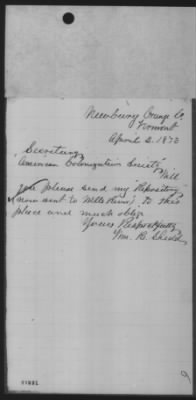 Newbury Orange Co
Vermont
April 2. 1873
Secretary
American Colonization Society
Will
you please send my "Repository"
now sent to Wells River, to this
place and much oblige
Yours Respectfully
Wm. R. Shedd